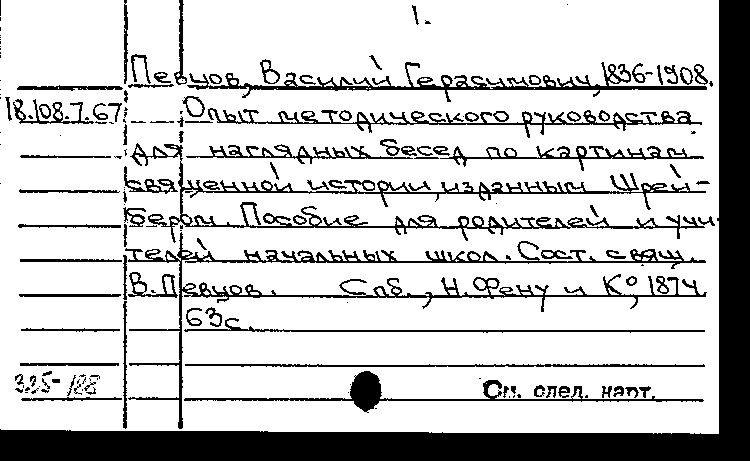 1.
Певцов, Василий Герасимович, 1836-1908.
18.108.7.67 Опыт методического руководства
для наглядных бесед по картинам
священной истории, изданным Шрей-
бером. Пособие для родителей и учи-
телей начальных школ. Сост. свящ.
В. Певцов. Спб., Н. Фену и К°, 1874.
63 с.
335-/88
См. след. карт.